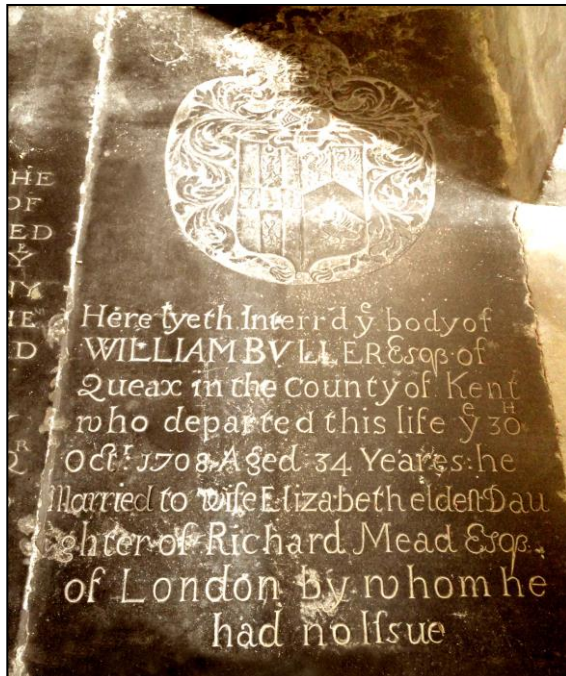 HE
OF
ED
Y
NY
HE
D
R
Here lyeth Interr'd yͤ body of
WILLIAM BVLLER Esqꝛ of
Queax in the County of Kent
who departed this life yͤ 30ᴴ
Octͬ 1708 Aged 34 Yeares: he
Married to wife Elizabeth eldest Dau
ghter of Richard Mead Esqꝛ
of London by whom he
had no Issue